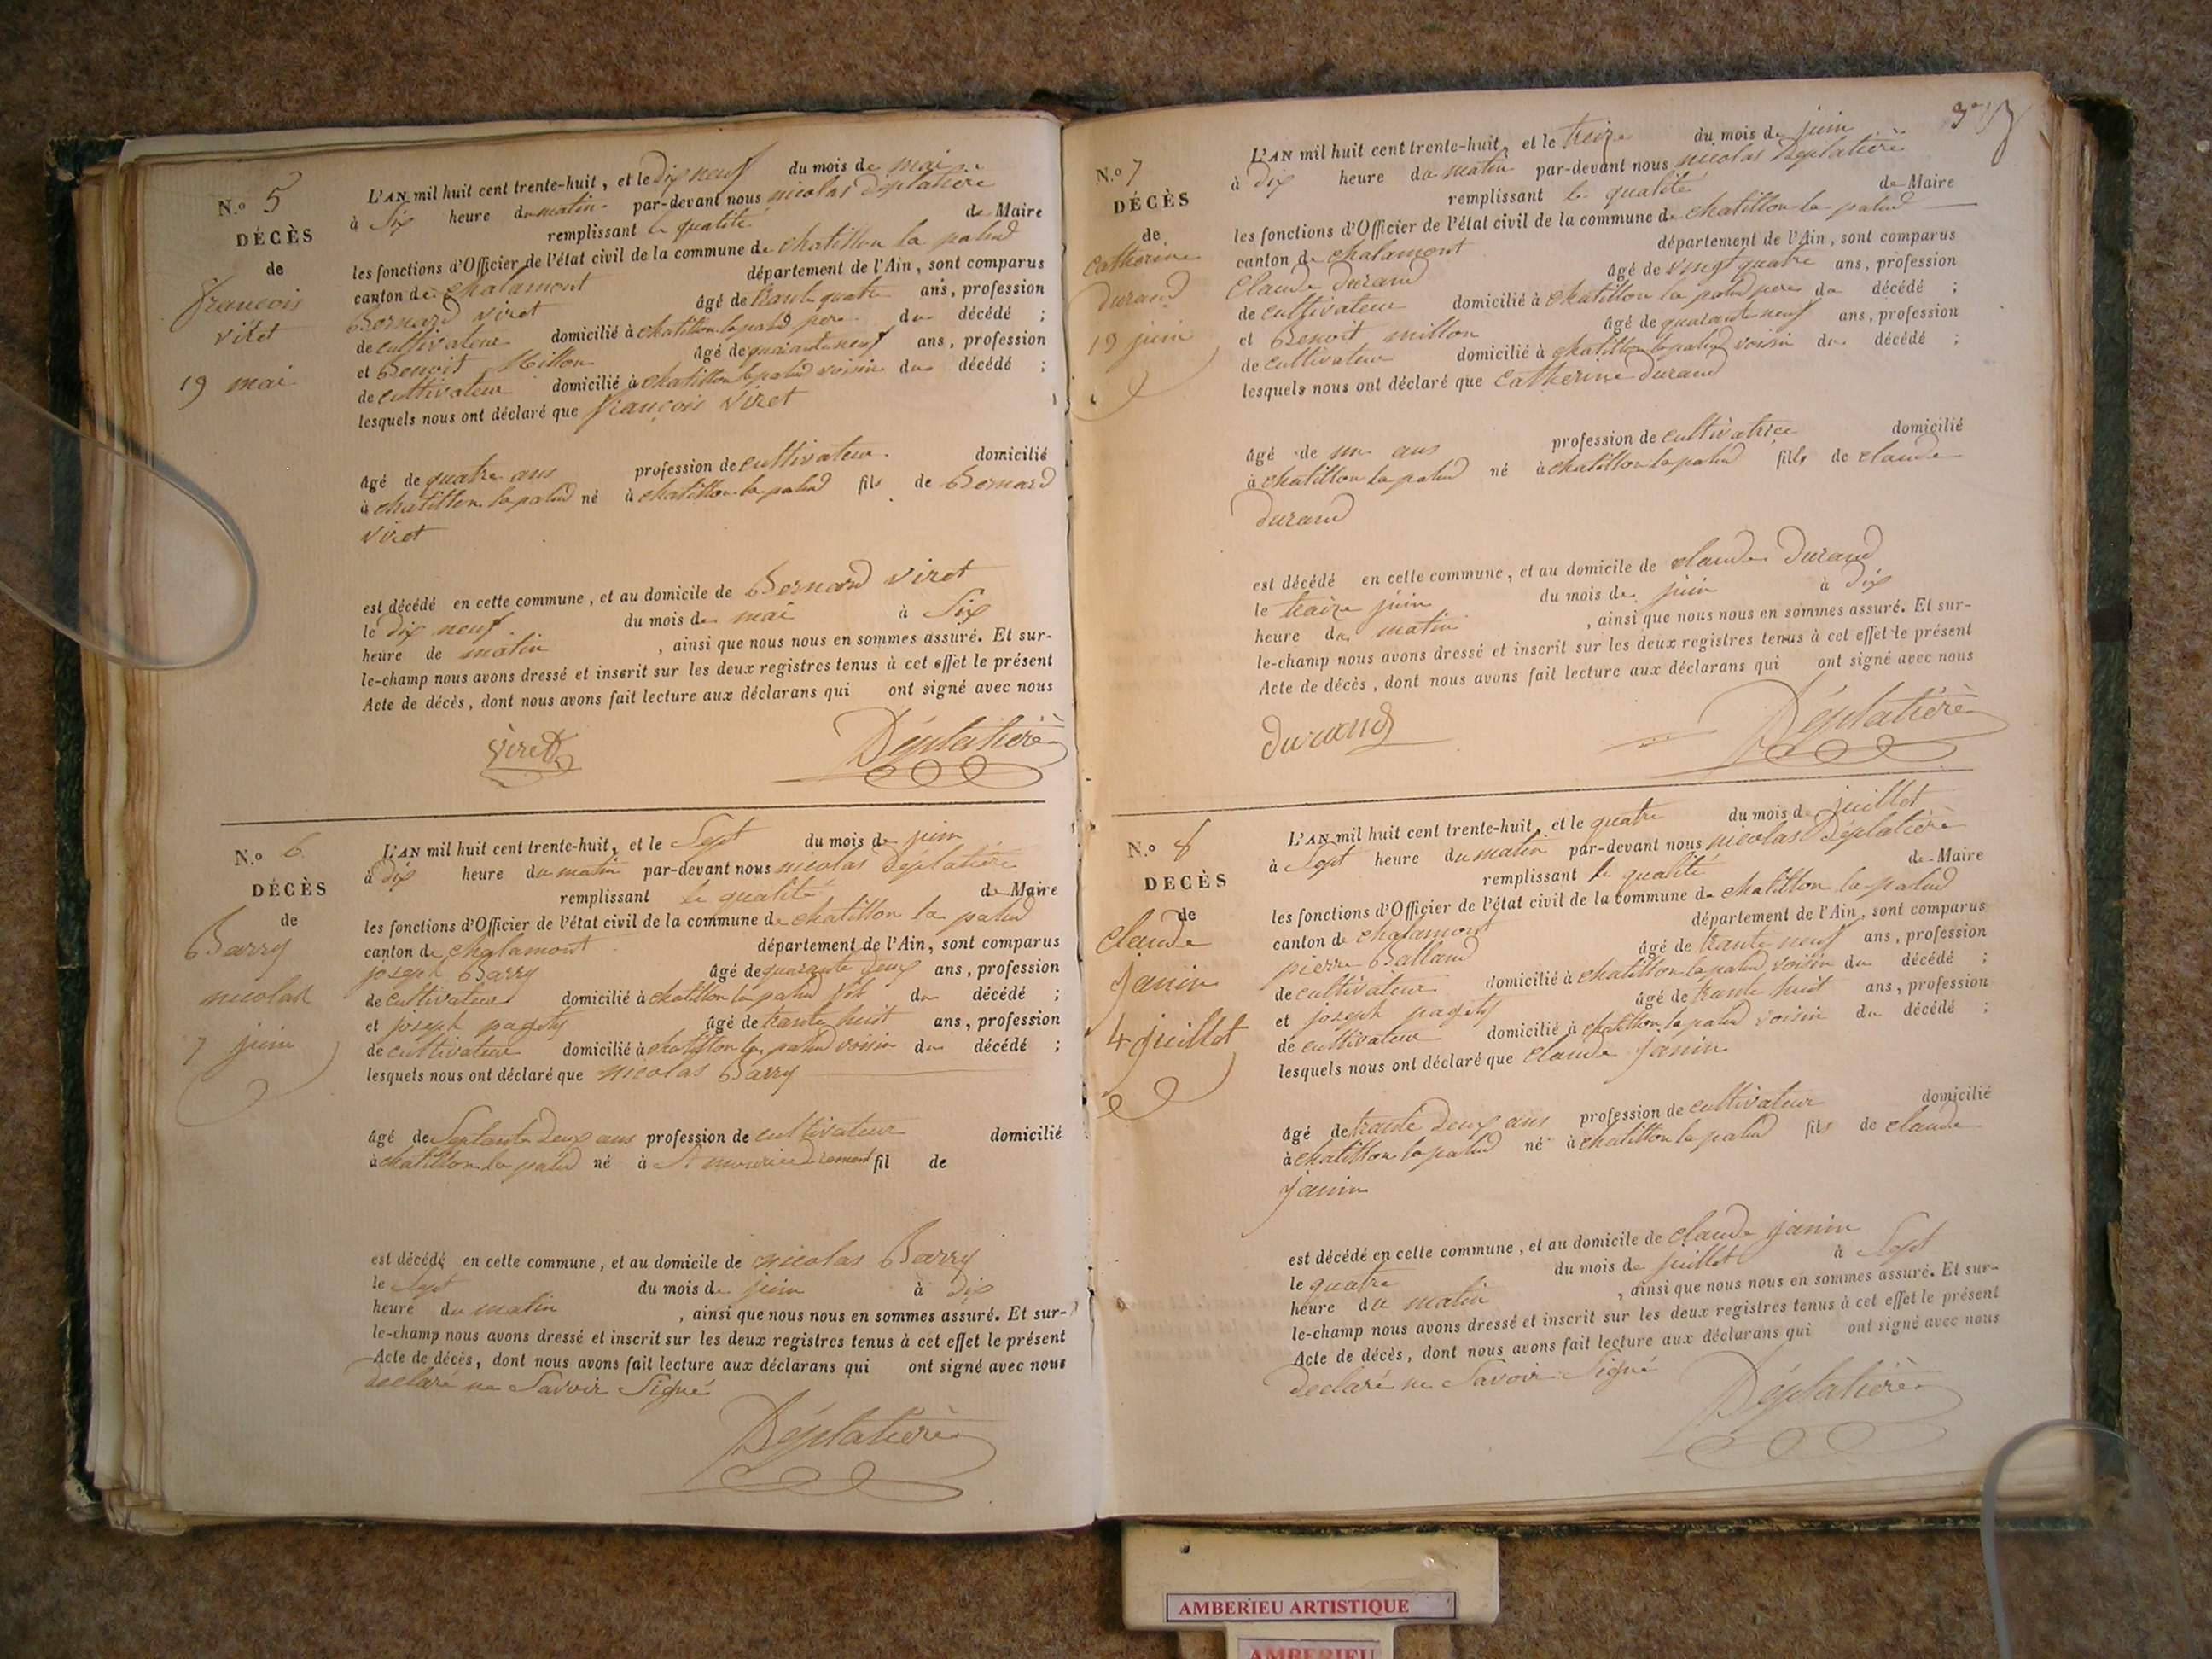 N.o 5
DÉCÈS
de
françois
viret
19 mai
L'AN mil huit cent trente-huit, et le dix neuf du mois de mai
à Six heure du matin par-devant nous nicolas Déplatière
remplissant la qualité de Maire
les fonctions d'Officier de l'état civil de la commune de chatillon la palud
canton de chalamont département de l'Ain, sont comparus
Bernard viret âgé de trante quatre ans, profession
de cultivateur domicilié à chatillon la palud pere du décédé ;
et Benoit Millon âgé de quarante neuf ans, profession
de cultivateur domicilié à chatillon la palud voisin du décédé ;
lesquels nous ont déclaré que françois viret
âgé de quatre ans profession de cultivateur domicilié
à chatillon la palud né à chatillon la palud fils de Bernard
viret
est décédé en cette commune, et au domicile de Bernard viret
le dix neuf du mois de mai à Six
heure de matin , ainsi que nous nous en sommes assuré. Et sur-
le-champ nous avons dressé et inscrit sur les deux registres tenus à cet effet le présent
Acte de décès, dont nous avons fait lecture aux déclarans qui ont signé avec nous
Viret Déplatière
N.o 6
DÉCÈS
de
Barry
nicolas
7 juin
L'AN mil huit cent trente-huit, et le Sept du mois de juin
à dix heure du matin par-devant nous nicolas Déplatière
remplissant la qualité de Maire
les fonctions d'Officier de l'état civil de la commune de chatillon la palud
canton de chalamont département de l'Ain, sont comparus
joseph Barry âgé de quarante deux ans, profession
de cultivateur domicilié à chatillon la palud fils du décédé ;
et joseph âgé de trante huit ans, profession
de cultivateur domicilié à chatillon la palud voisin du décédé ;
lesquels nous ont déclaré que nicolas Barry
âgé de Septante deux ans profession de cultivateur domicilié
à chatillon la palud né à St mourice de remens fil de
est décédé en cette commune, et au domicile de nicolas Barry
le Sept du mois de juin à dix
heure du matin , ainsi que nous nous en sommes assuré. Et sur-
le-champ nous avons dressé et inscrit sur les deux registres tenus à cet effet le présent
Acte de décès, dont nous avons fait lecture aux déclarans qui ont signé avec nous
declaré ne Savoir Signé
Déplatière
N.o 7
DÉCÈS
de
catherine
durand
13 juin
L'AN mil huit cent trente-huit, et le treize du mois de juin
à dix heure du matin par-devant nous nicolas Déplatière
remplissant la qualité de Maire
les fonctions d'Officier de l'état civil de la commune de chatillon la palud
canton de chalamont département de l'Ain, sont comparus
Claude durand âgé de vingt quatre ans, profession
de cultivateur domicilié à chatillon la palud pere du décédé ;
et Benoit millon âgé de quarante neuf ans, profession
de cultivateur domicilié à chatillon la palud voisin du décédé ;
lesquels nous ont déclaré que catherine durand
âgé de un ans profession de cultivatrice domicilié
à chatillon la palud né à chatillon la palud fille de claude
durand
est décédé en cette commune, et au domicile de claude durand
le traize juin du mois de juin à dix
heure du matin , ainsi que nous nous en sommes assuré. Et sur-
le-champ nous avons dressé et inscrit sur les deux registres tenus à cet effet le présent
Acte de décès, dont nous avons fait lecture aux déclarans qui ont signé avec nous
durand Déplatière
N.o 8
DECÈS
de
claude
janin
4 juillet
L'AN mil huit cent trente-huit, et le quatre du mois de juillet
à Sept heure du matin par-devant nous nicolas Déplatière
remplissant la qualité de Maire
les fonctions d'Officier de l'état civil de la commune de chatillon la palud
canton de chalamont département de l'Ain, sont comparus
pierre Balland âgé de trante neuf ans, profession
de cultivateur domicilié à chatillon la palud voisin du décédé ;
et joseph âgé de trante huit ans, profession
de cultivateur domicilié à chatillon la palud voisin du décédé ;
lesquels nous ont déclaré que claude janin
âgé de trante deux ans profession de cultivateur domicilié
à chatillon la palud né à chatillon la palud fils de claude
janin
est décédé en cette commune, et au domicile de claude janin
le quatre du mois de juillet à Sept
heure du matin , ainsi que nous nous en sommes assuré. Et sur-
le-champ nous avons dressé et inscrit sur les deux registres tenus à cet effet le présent
Acte de décès, dont nous avons fait lecture aux déclarans qui ont signé avec nous
Declaré ne Savoir Signé
Déplatière
AMBERIEU ARTISTIQUE
AMBERIEU